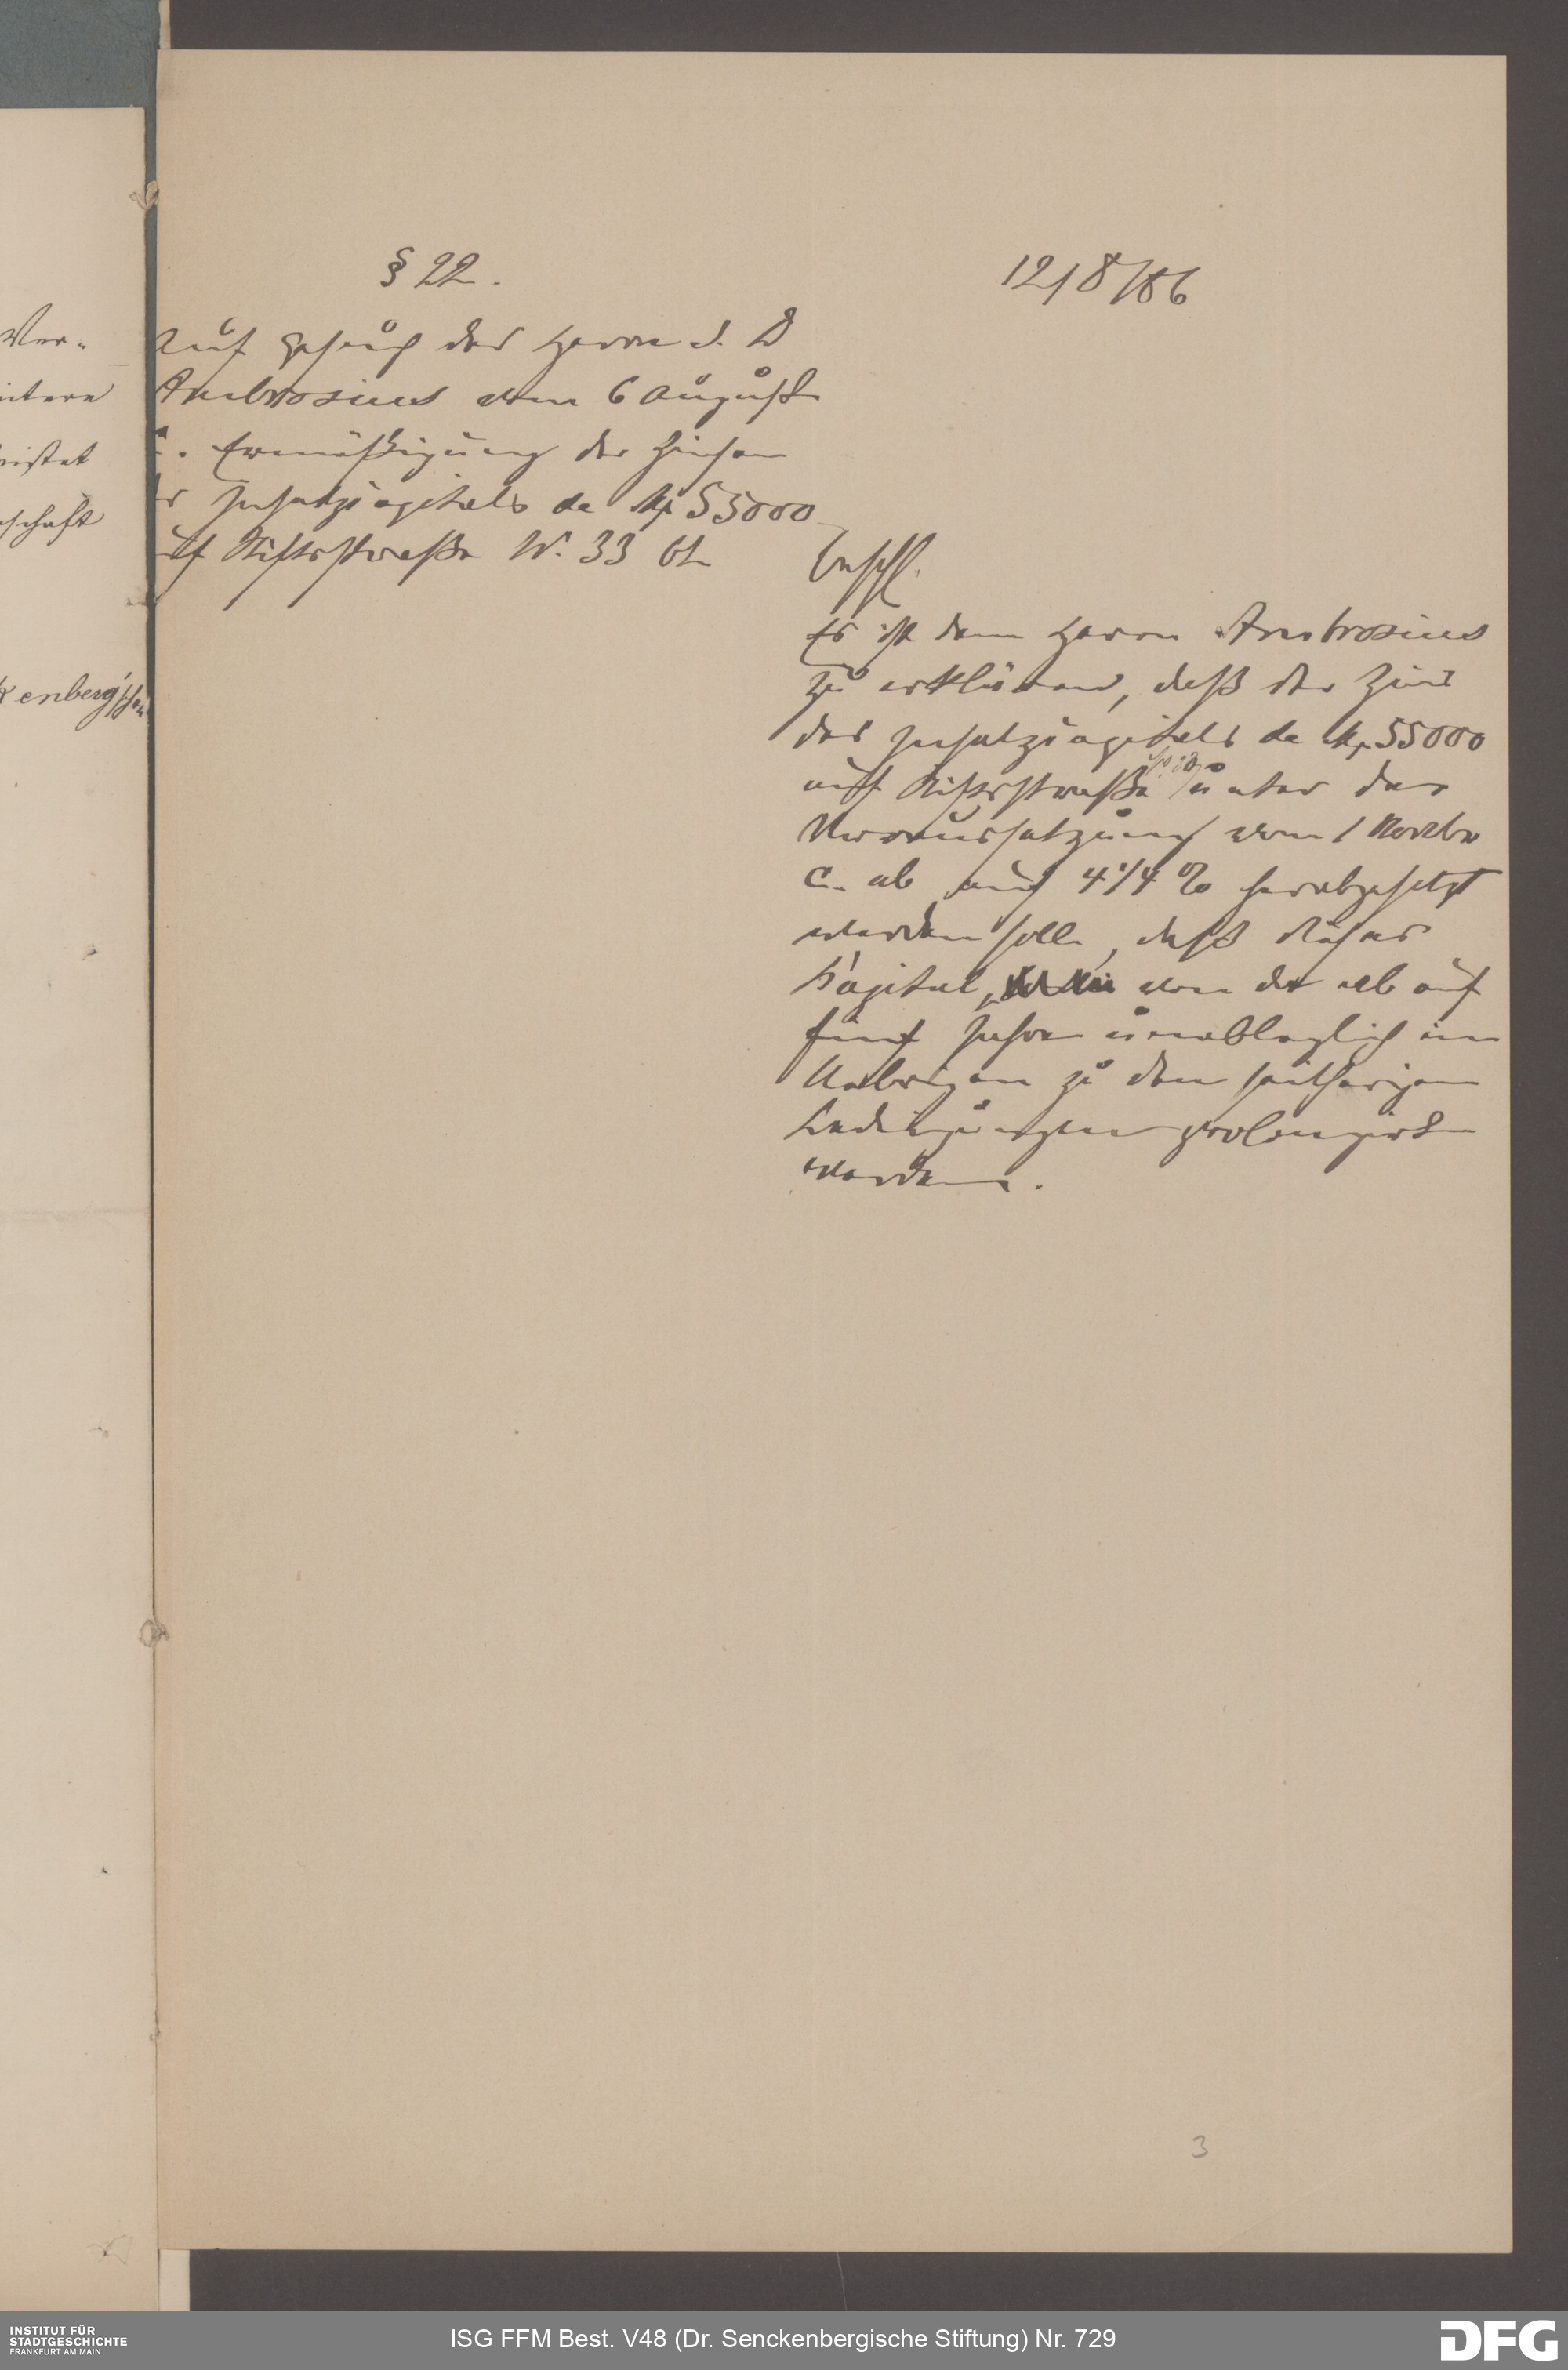 § 22.
12/8/86
Auf Gesuch des Herrn J. D
Ambrosius vom 6 August
c. Ermäßigung der Zinsen
Insatzcapitals de M 55000
auf Stiftsstraße N. 33 bt
Beschl.
Es ist dem Herrn Ambrosius
zu erklären, daß der Zins
des Insatzcapitals de M 55000
auf Stiftsstraße N. 33 unter der
Voraussetzung vom 1 Novbr
c. ab auf 4 1/4 % herabgesetzt
werden solle, daß dieses
Kapital, von da ab auf
fünf Jahre unablöglich im
Uebrigen zu den seitherigen
Bedingungen prolongirt
werden.
Ver-
itere
ristet
schaft
kenberg'schen
3
INSTITUT FÜR
STADTGESCHICHTE
FRANKFURT AM MAIN
ISG FFM Best. V48 (Dr. Senckenbergische Stiftung) Nr. 729
DFG